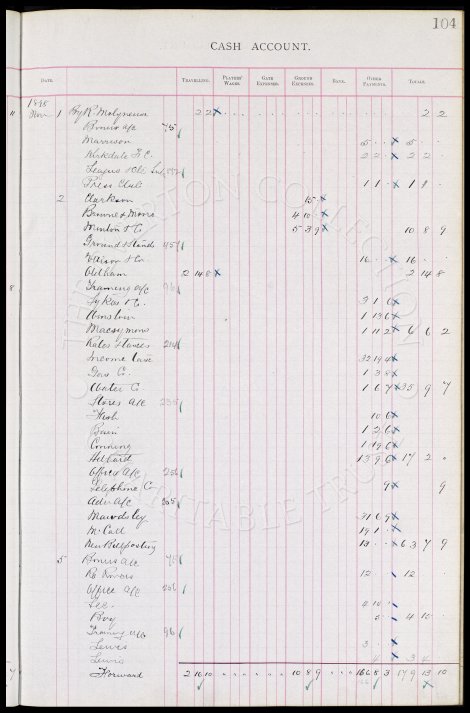 104
CASH ACCOUNT.
DATE. TRAVELLING. PLAYERS' WAGES. GATE EXPENSES. GROUND EXPENSES. BANK. OTHER PAYMENTS. TOTALS.
1895
Nov 1 By R. Molyneux 2 2 2 2
Bonus a/c 75
Morrison 5 5
Kirkdale F. C. 2 2 2 2
League
Press Club 1 1 1 1
2 Clarkson 15
Browne & Morris 4 10
Minton & Co 5 3 9 10 8 9
Ground & Stands 45
Ellison & Co 16 16
Oldham 2 14 8 2 14 8
Training a/c 96
Sykes & Co 3 1 6
1 13 6
Macsymons 1 11 2 6 6 2
Rates & Taxes 214
Income Tax 32 19 4
Gas Co. 1 3 8
Water Co. 1 6 7 35 9 7
Stores a/c 235
10 6
1 2 6
Conning 1 19 6
13 9 6 17 2
Office a/c 256
Telephone Co 9 9
Adv a/c 205
Mawdsley 31 6 9
McCall 19 1
New Billposting 13 63 7 9
5 Bonus a/c 75
Re Rovers 12 12
Office a/c 256
Lee. 4 10
Boy 5 4 10
Training a/c 96
Lewis 3
Lewis 4 3 4
Forward 2 16 10 10 8 9 166 8 3 179 13 10